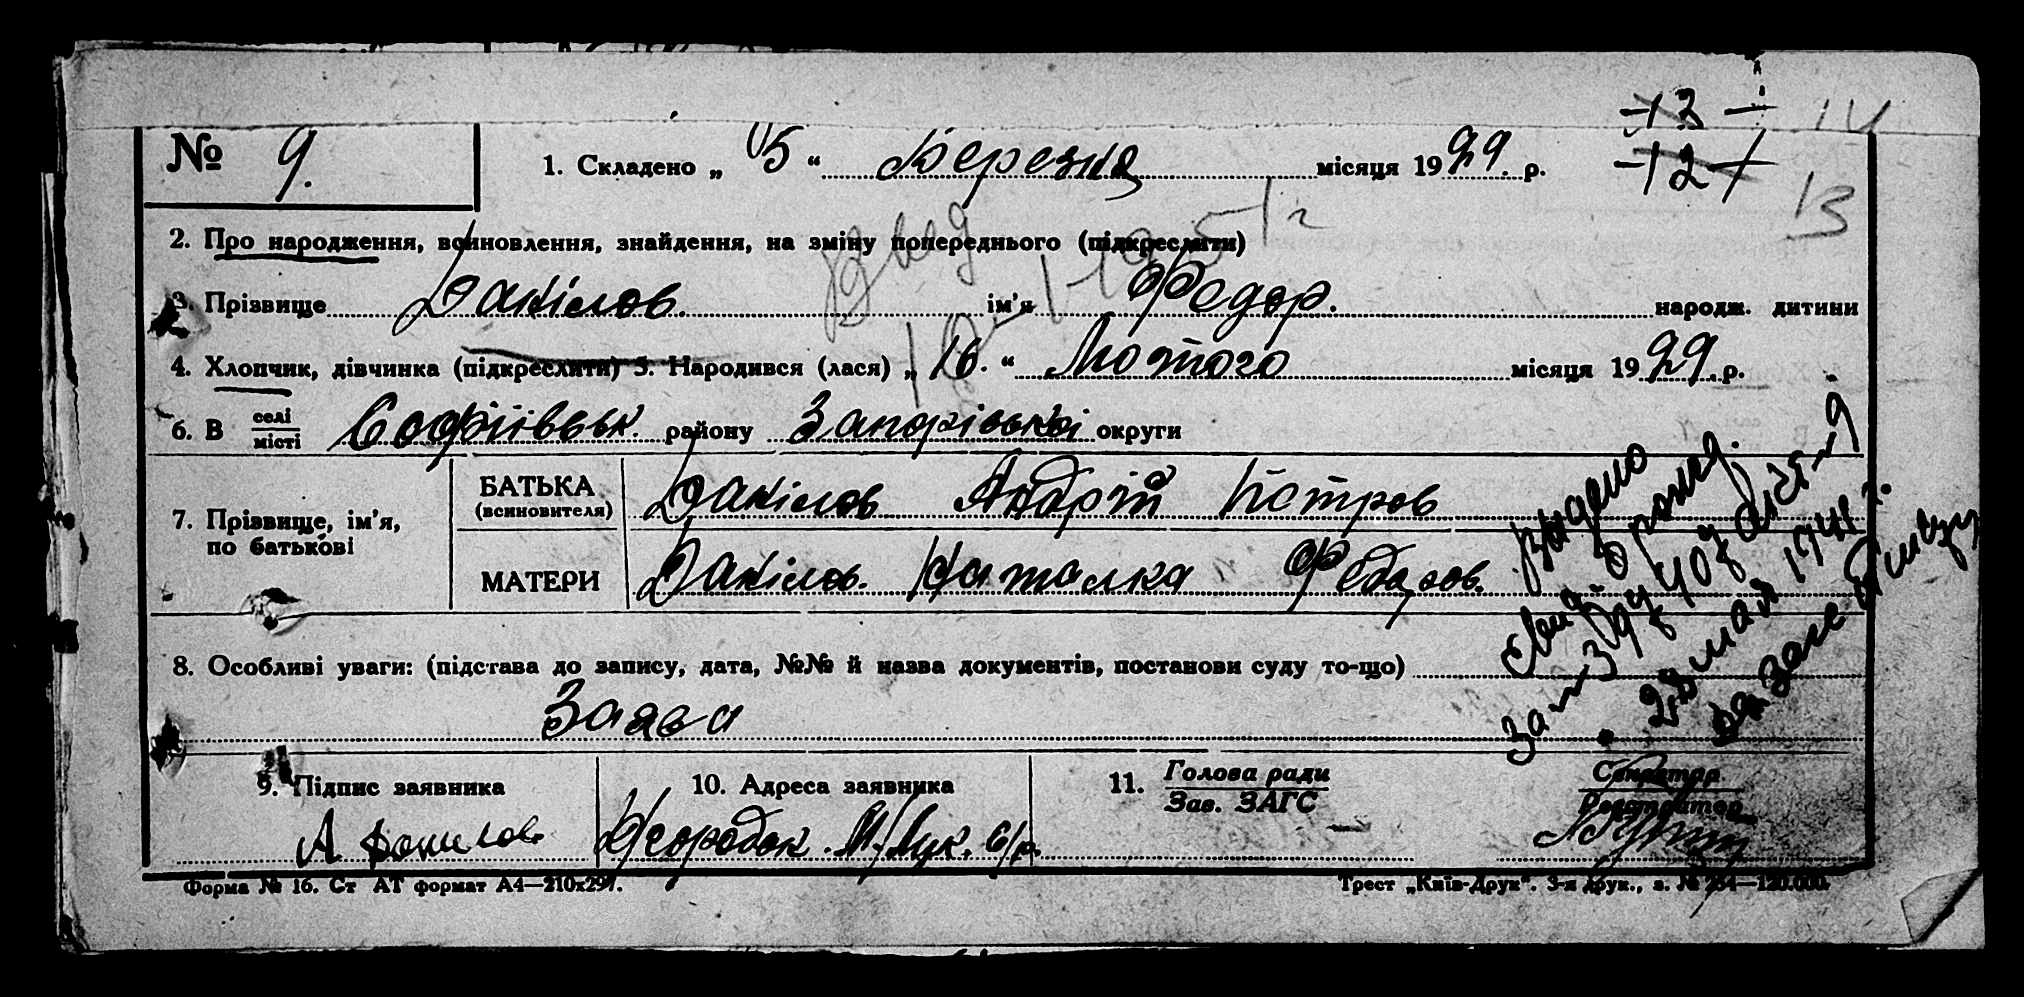 -13-
14
№ 9. 1. Складено „ 05 “ Березня місяця 1929. р.
-12-
13
2. Про народження, всиновлення, знайдення, на зміну попереднього (підкреслити)
3. Прізвище Данілов. ім’я Федор. народж. дитини
4. Хлопчик, дівчинка (підкреслити) 5. Народився (лася) „ 16. “ Лютого місяця 1929. р.
6. В селі/місті Софіївськ. району Запорізькі округи
7. Прізвище, ім’я, по батькові
БАТЬКА (всиновителя) Данілов Андрій Петров
МАТЕРИ Данілов. Наталка Федоров.
8. Особливі уваги: (підстава до запису, дата, №№ й назва документів, постанови суду то-що)
Заява
Выдано
свид. о рожд.
мая 1941 г.
9. Підпис заявника 10. Адреса заявника 11. Голова ради/Зав. ЗАГС Секретар/Реєстратор
А Данилов
Форма № 16. Ст АТ формат А4—210x297. Трест „Київ-Друк“. 3-я друк., з. № 254—120.000.